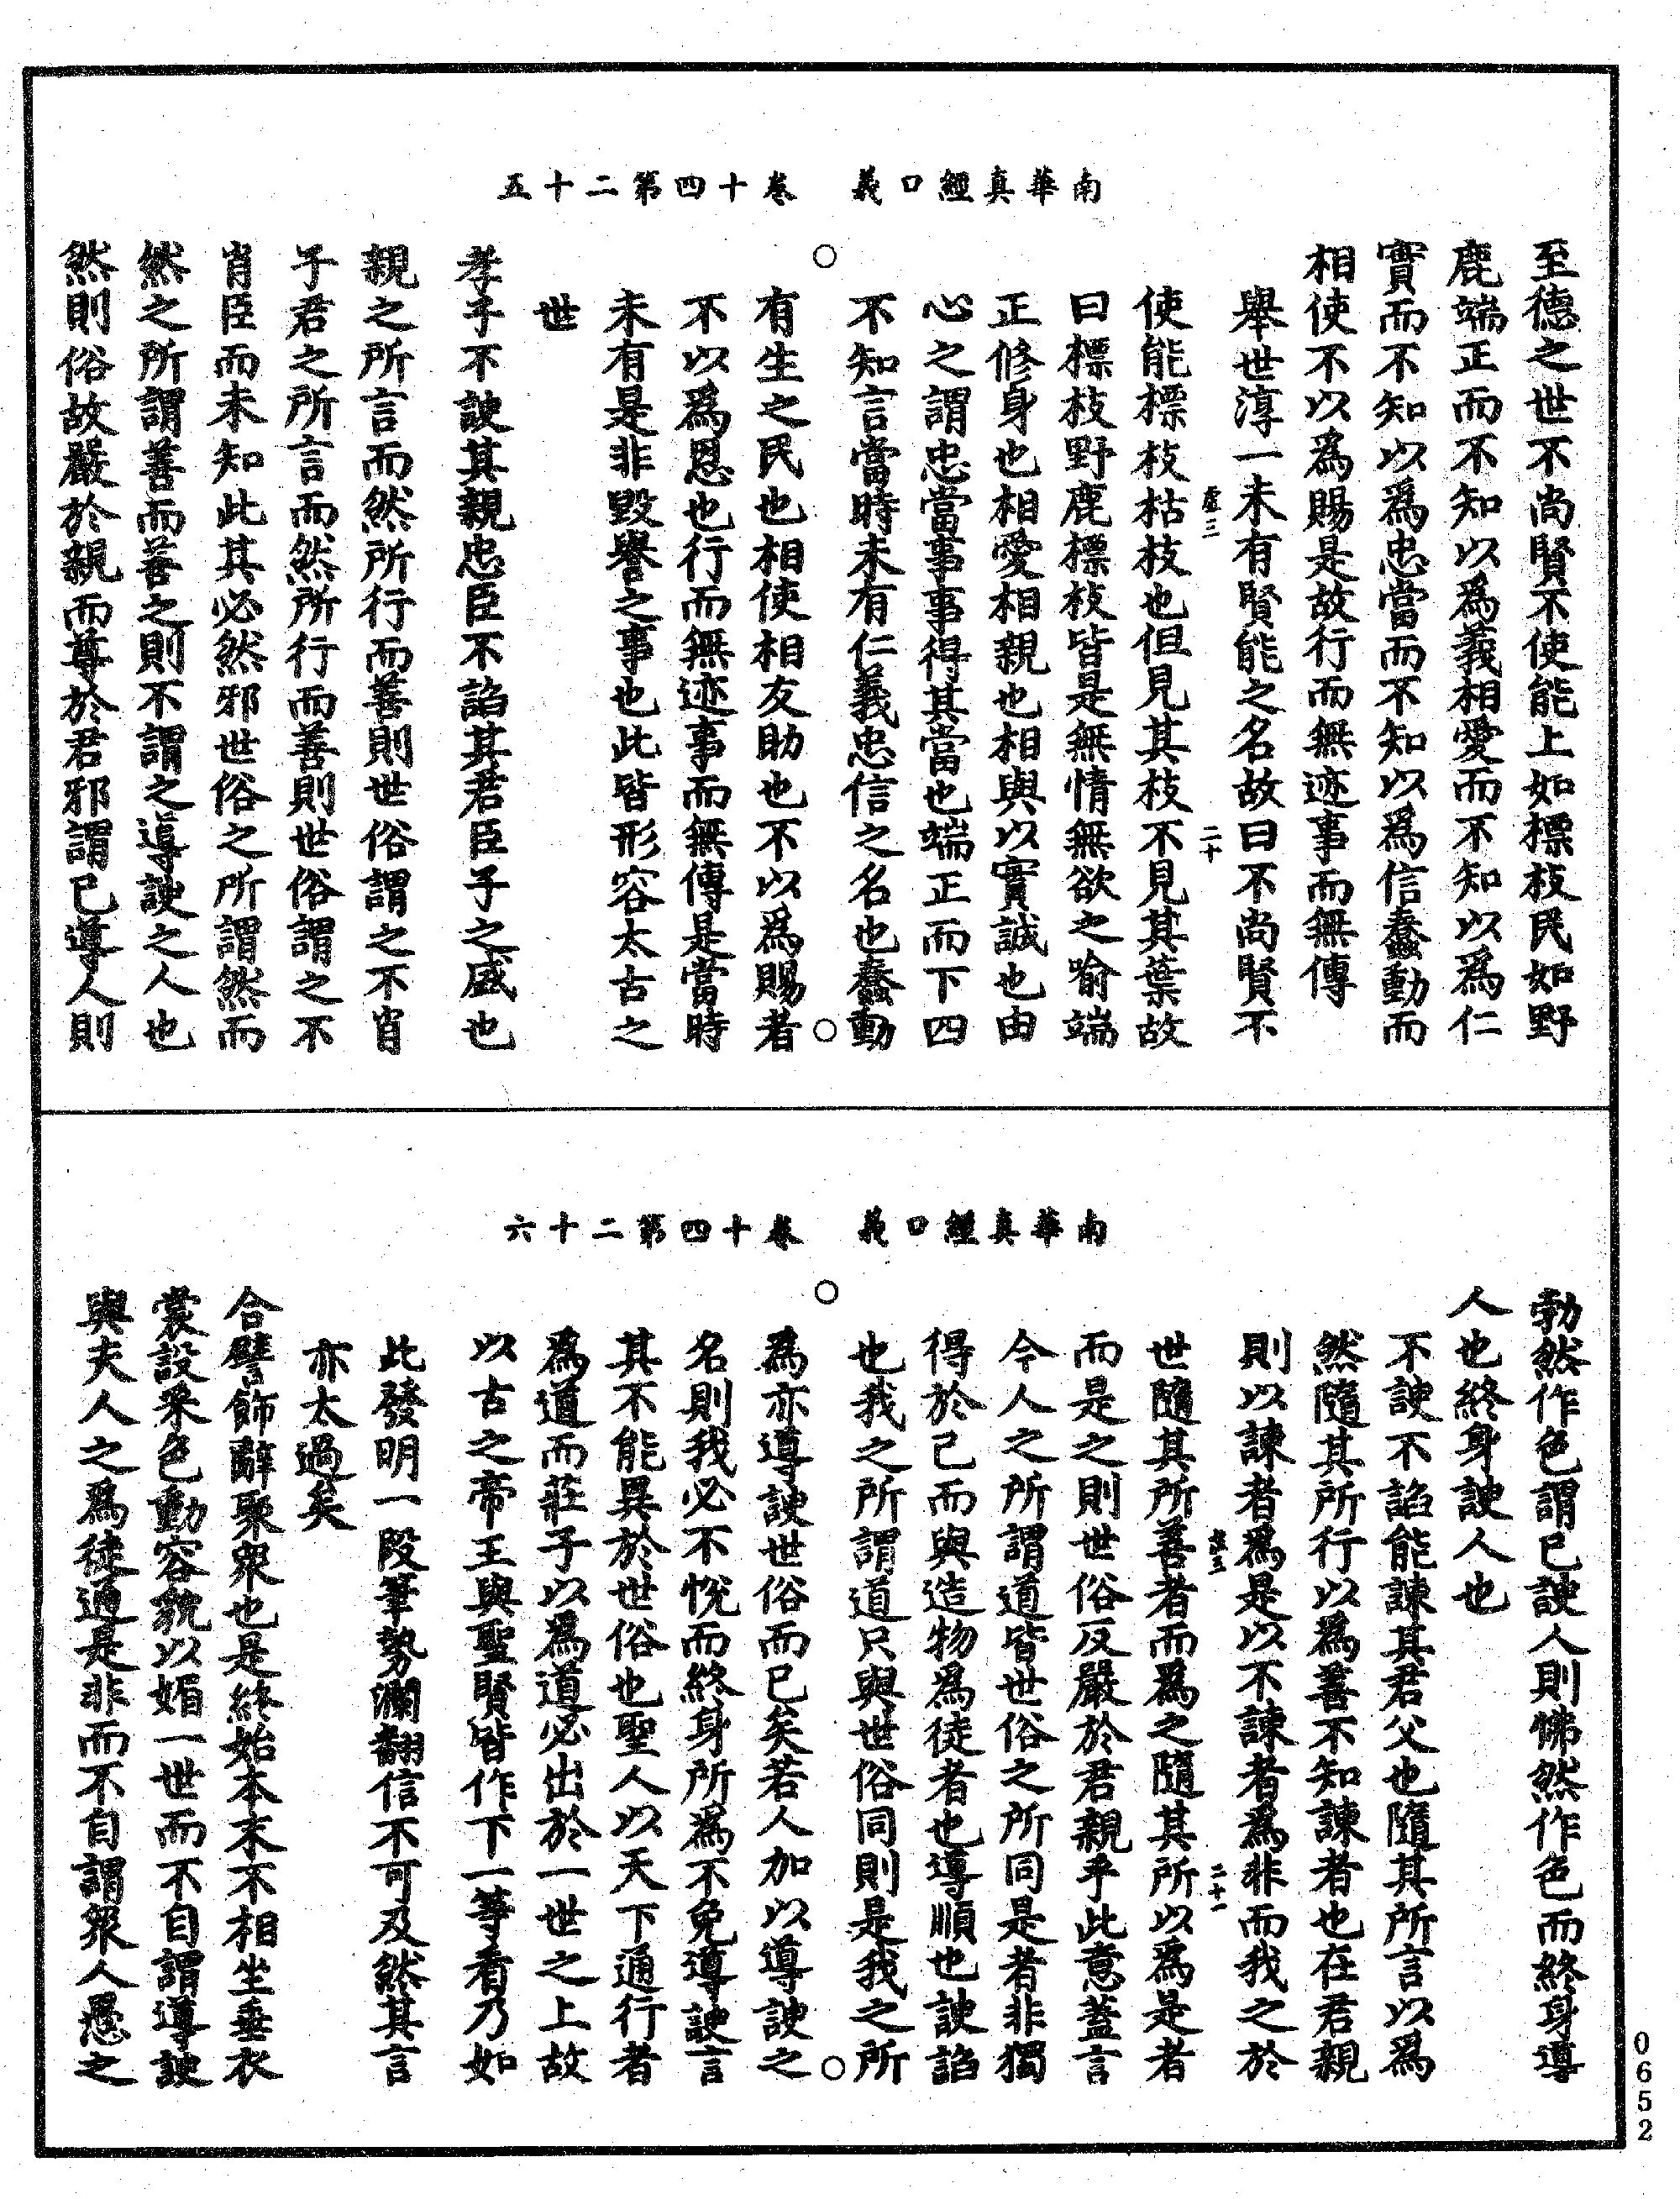 南華真經口義　卷十四第二十五
至德之世不尚賢不使能上如標枝民如野
鹿端正而不知以為義相愛而不知以為仁
實而不知以為忠當而不知以為信蠢動而
相使不以為賜是故行而無迹事而無傳
舉世淳一未有賢能之名故曰不尚賢不
虛三　二十
使能標枝枯枝也但見其枝不見其葉故
曰標枝野鹿標枝皆是無情無欲之喻端
正修身也相愛相親也相與以實誠也由
心之謂忠當事事得其當也端正而下四
不知言當時未有仁義忠信之名也蠢動
有生之民也相使相友助也不以為賜者
不以為恩也行而無迹事而無傳是當時
未有是非毀譽之事也此皆形容太古之
世
孝子不諛其親忠臣不諂其君臣子之盛也
親之所言而然所行而善則世俗謂之不肖
子君之所言而然所行而善則世俗謂之不
肖臣而未知此其必然邪世俗之所謂然而
然之所謂善而善之則不謂之導諛之人也
然則俗故嚴於親而尊於君邪謂己導人則
南華真經口義　卷十四第二十六
勃然作色謂己諛人則怫然作色而終身導
人也終身諛人也
不諛不諂能諫其君父也隨其所言以為
然隨其所行以為善不知諫者也在君親
則以諫者為是以不諫者為非而我之於
虛三　二十一
世隨其所善者而為之隨其所以為是者
而是之則世俗反嚴於君親乎此意蓋言
今人之所謂道皆世俗之所同是者非獨
得於己而與造物為徒者也導順也諛諂
也我之所謂道只與世俗同則是我之所
為亦導諛世俗而已矣若人加以導諛之
名則我必不悅而終身所為不免導諛言
其不能異於世俗也聖人以天下通行者
為道而莊子以為道必出於一世之上故
以古之帝王與聖賢皆作下一等看乃如
此發明一段筆勢瀾翻信不可及然其言
亦太過矣
合譬飾辭聚眾也是終始本末不相坐垂衣
裳設采色動容貌以媚一世而不自謂導諛
與夫人之為徒通是非而不自謂眾人愚之
0652